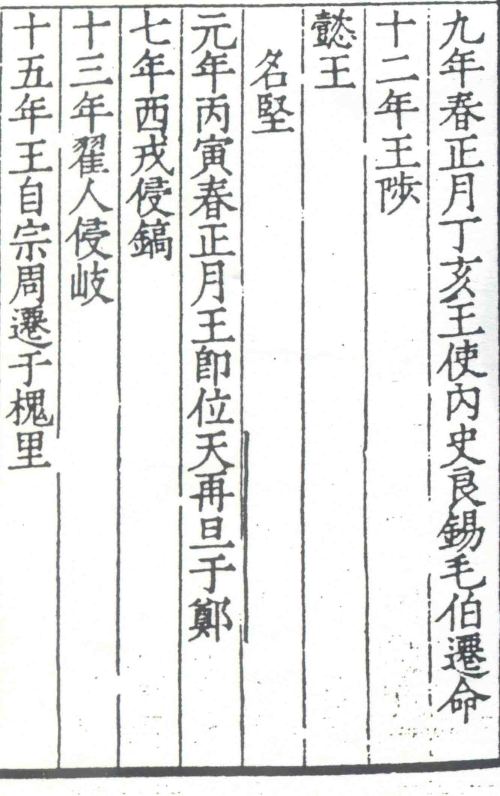 九年春正月丁亥王使內史良錫毛伯遷命
十二年王陟
懿王
名堅
元年丙寅春正月王即位天再旦于鄭
七年西戎侵鎬
十三年翟人侵岐
十五年王自宗周遷于槐里